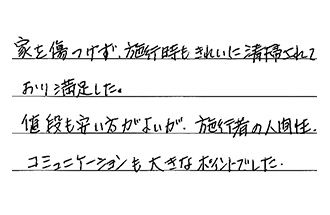 家を傷つけず、施行時もきれいに清掃されて
おり満足した。
値段も安い方がよいが、施行者の人間性、
コミュニケーションも大きなポイントでした。